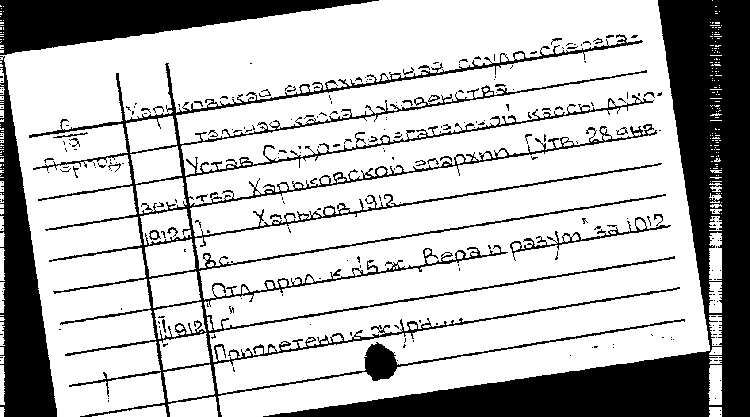 Харьковская епархиальная ссудо-сберега-
тельная касса духовенства
С
19
Период.
Устав Ссудо-сберегательной кассы духо-
венства Харьковской епархии. [Утв. 28 янв.
1912г.]. Харьков, 1912.
8с.
"Отд. прил. к №5 ж. „Вера и разум" за 1012
[1912] г."
Приплетено к журн....